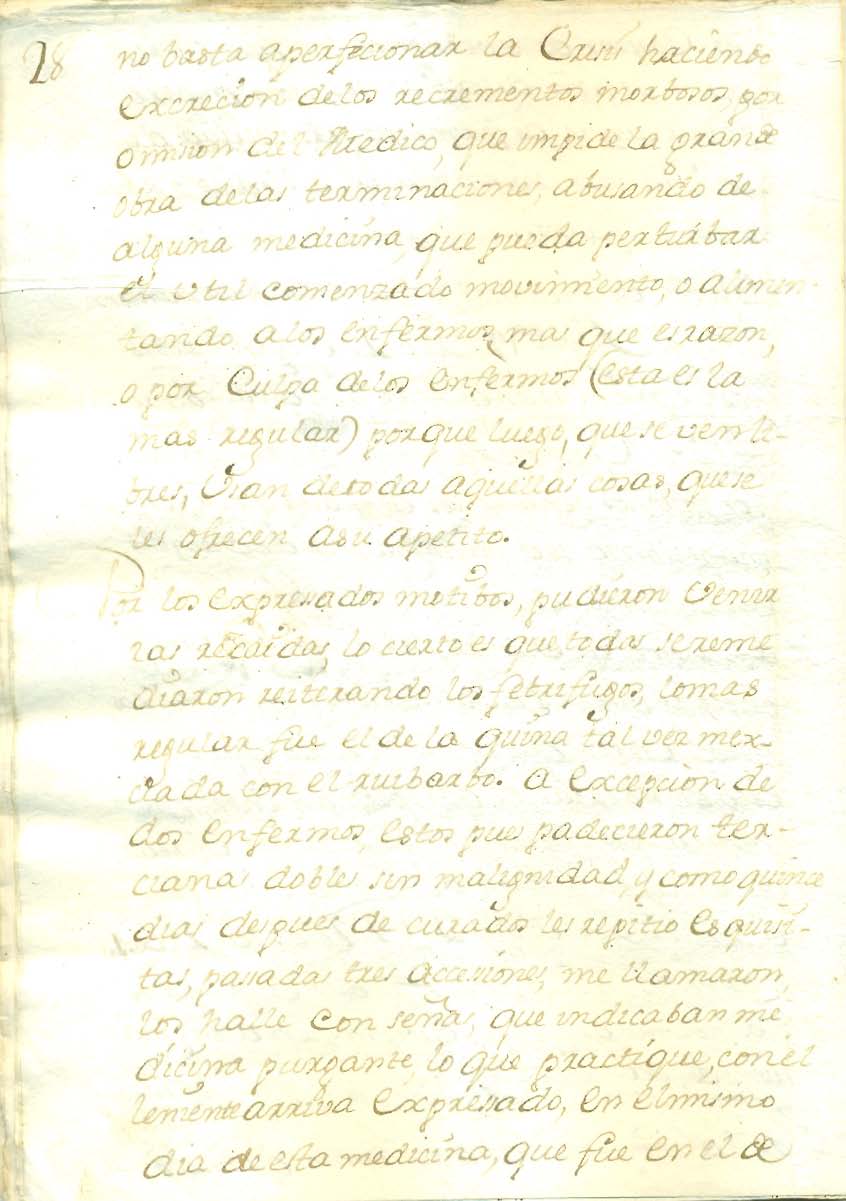 28
no basta aperfecionar la Crisis haciendo
excrecion delos recrementos morbosos, por
omision del Medico, que impide la grande
obra delas terminaciones, abusando de
alguna medicina, que pueda perturbar
el util comenzado movimiento, o alimen-
tando alos enfermos, mas que es razon,
o por Culpa delos enfermos (esta es la
mas regular) porque luego, que se ven li-
bres, Usan detodas aquellas cosas, que se
les ofrecen asu apetito.
Por los expressados motibos, pudieron venir
las recaidas, lo cierto es que todas sereme
diaron reiterando los febrifugos, lo mas
regular fue el de la quina tal vez mez-
clada con el ruibarbo. a excepcion de
dos enfermos, estos pues padecieron ter-
cianas dobles sin malignidad, y como quince
dias despues de curados les repitio
tas, passadas tres accessiones, me llamaron,
los halle con señas, que indicaban me
dicina purgante, lo que practique, con el
leniente arriva expressado, en el mismo
dia de esta medicina, que fue en el de